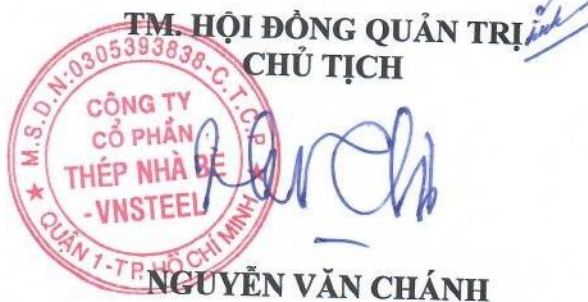 TM. HỘI ĐỒNG QUẢN TRỊ
CHỦ TỊCH
M.S.D.N:0305393838-C.T.C.P
CÔNG TY
CỔ PHẦN
THÉP NHÀ BÈ
-VNSTEEL
QUẬN 1-TP. HỒ CHÍ MINH
NGUYỄN VĂN CHÁNH